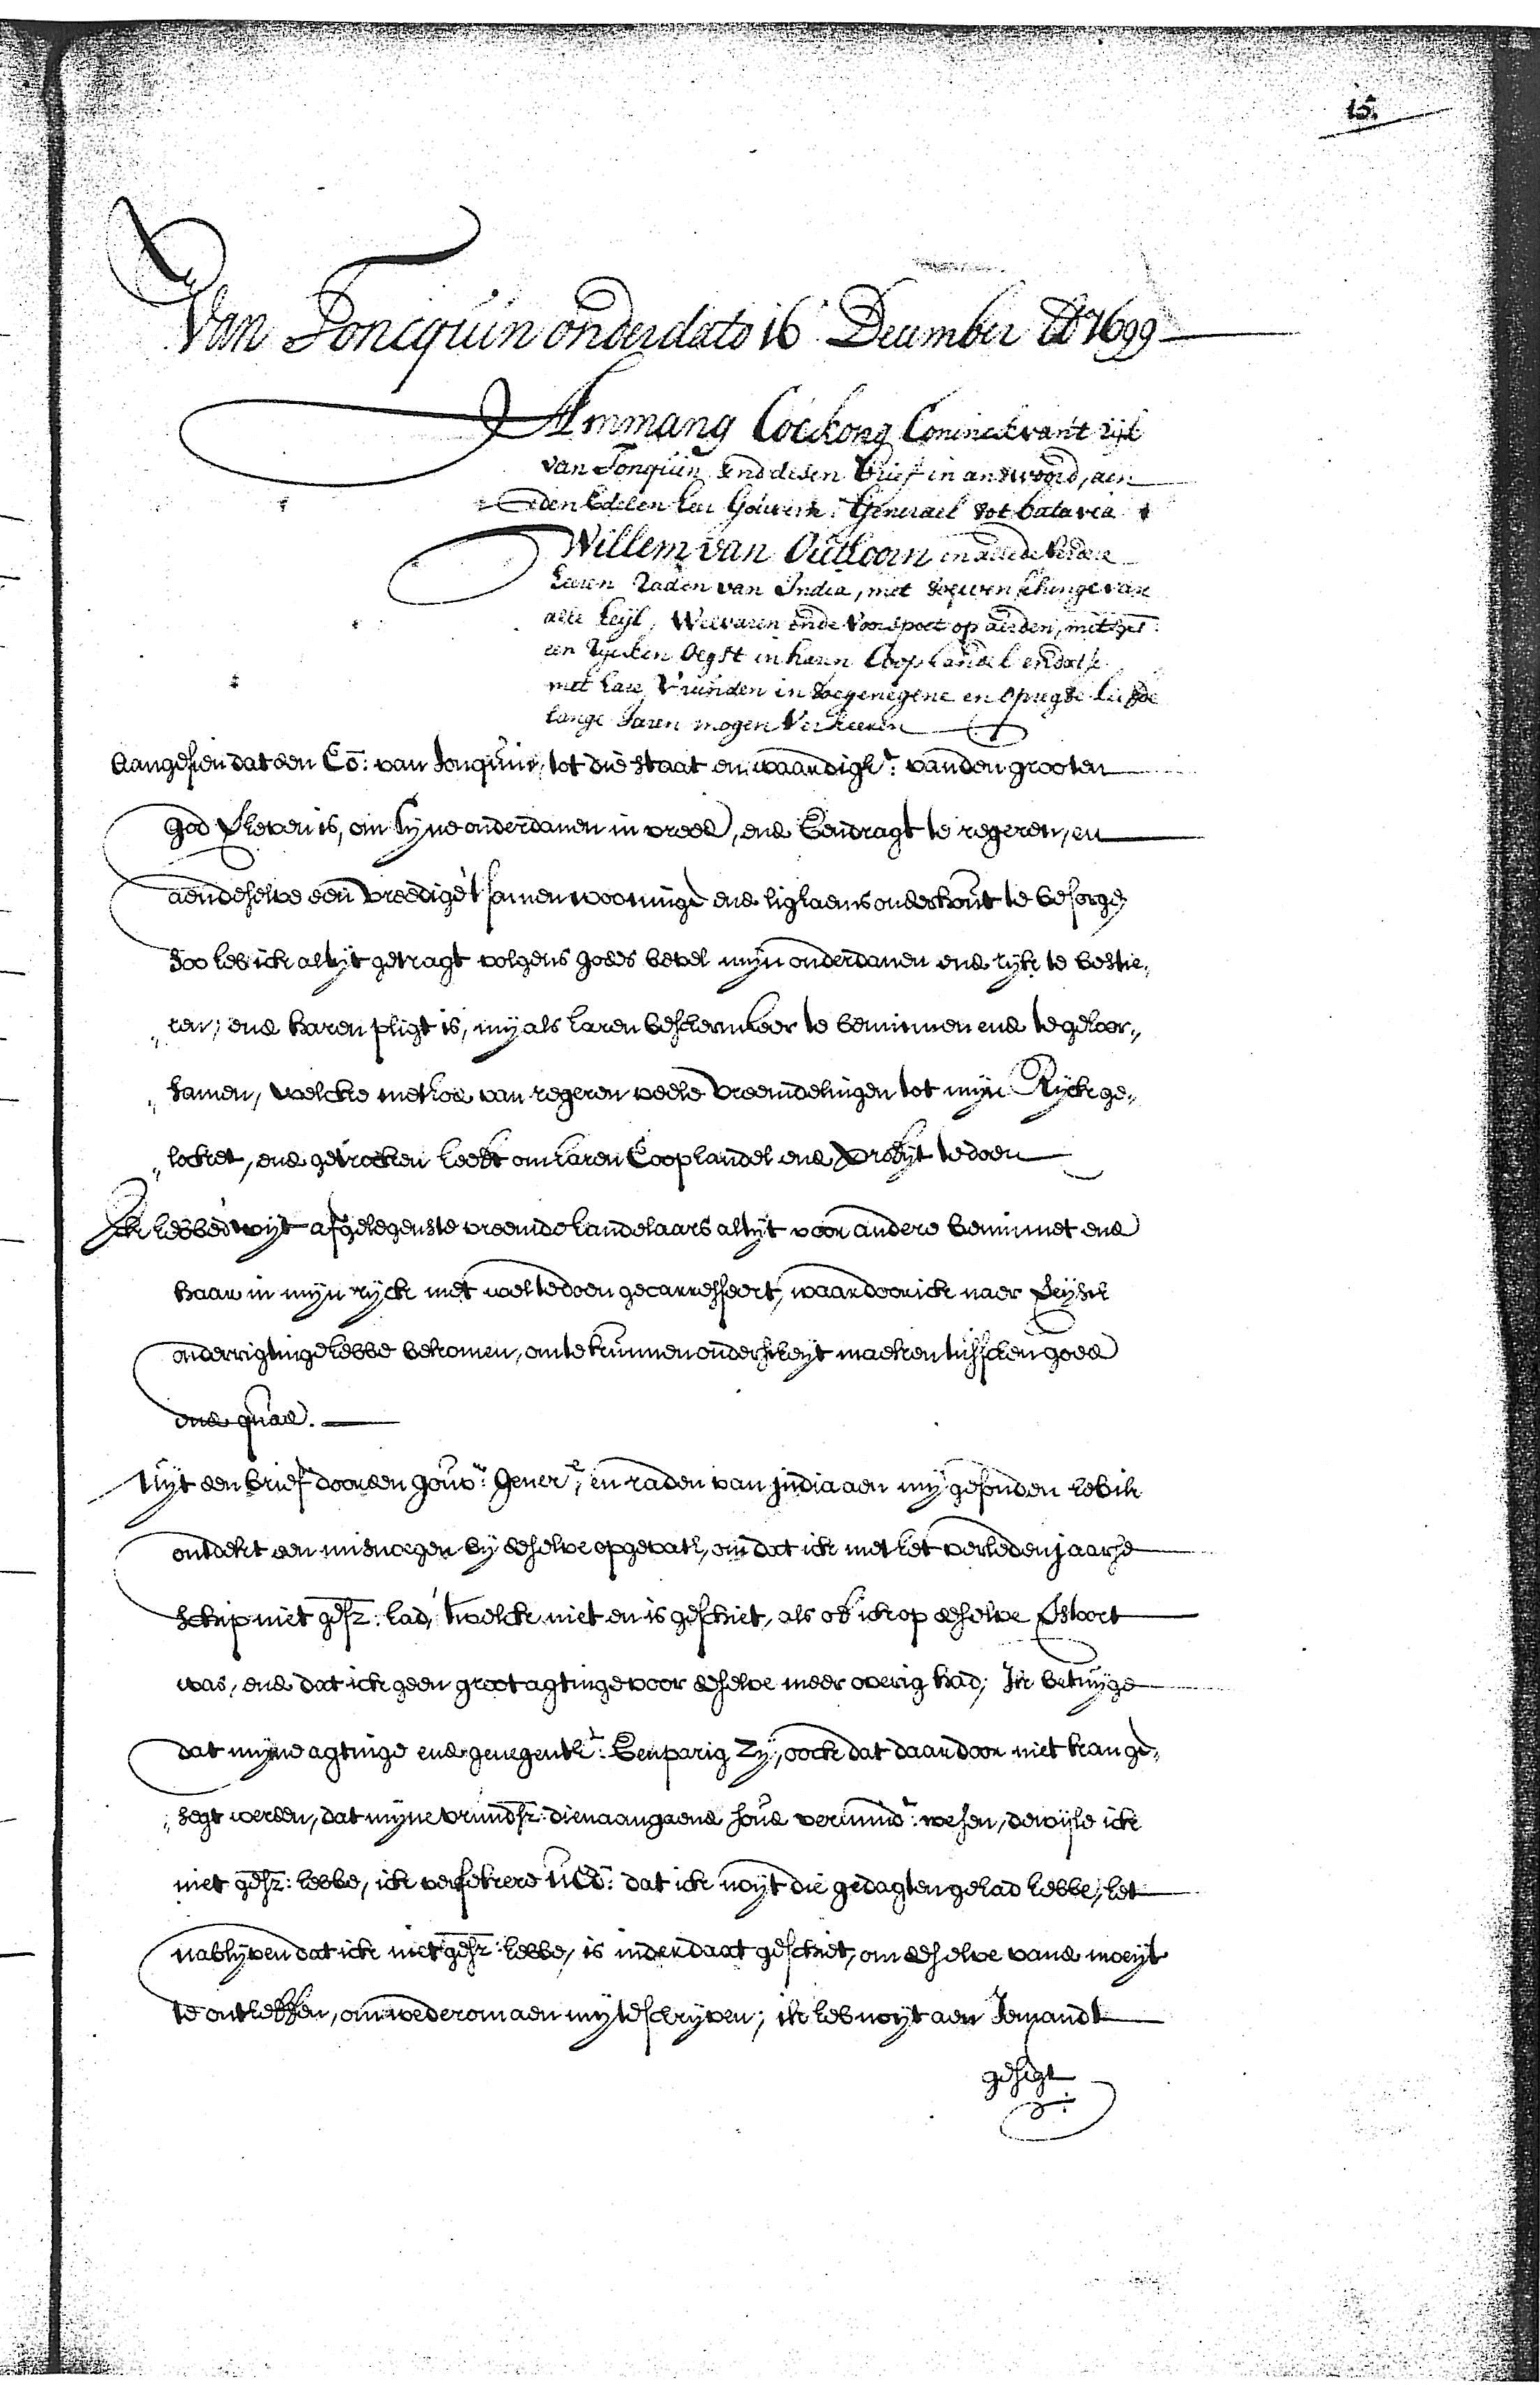 15.
Van Toncquin onder dato 16 December Ao 1699
Ammang Cockong Coninck van't rijk
van Tonquin send desen brief in andwoord, aen
den Edelen heer Gouvern: Generael tot batavia
Willem van Outhoorn en alle de verdere
heeren raden van India, met toewenschinge van
alle heijl, Welvaren ende Voorspoet op aerden, mitsgs:
een rijcken Oegst in haren Coophandel en dat se
met hare Vrunden in toegenegene en Opregte liefde
lange Jaren mogen Verkeeren
Aangesien dat den Co: van Tonquin, tot die staat en waardight: van den grooten
god verheven is, om sijne onderdanen in vreede, ende Eendragt te regeren, en
aen deselve een vreedige t'samenwooninge ende lighaems onderhout te besorge,
soo heb ick altijt getragt volgens godes bevel mijn onderdanen ende rijk te bestie„
„ren; ende haren pligt is, mij als haren beschermheer te beminnen ende te gehoor„
„samen, welcke methode van regeren veele vreemdelingen tot mijn Rijck ge„
„locket, ende getrocken heeft om haren Coophandel ende profijt te doen
Ick hebbe wijt afgelegenste vreemde handelaars altijt voor andere bemint ende
haar in mijn rijck met weltedoen gecaresseert, waar door ick naer
onderrigtinge hebbe bekomen, om te kunnen onderscheijt maeken tusschen goed
ende quaad.
Uijt den brief door den Gouvr: Generl; en raden van India aen mij gesonden heb ik
ontdekt een misnoegen bij deselve opgevat, om dat ick met het verleden jaarse
schip niet gesz: had, 't welcke niet en is geschiet, als of ick op deselve verstoort
was, ende dat ick geen groot agtinge voor deselve meer overig had; Ik betuijge
dat mijne agtinge ende genegentht: Eenparig Zij, oock dat daar door niet kan ge„
„segt werden, dat mijne vrundsz: dienaangaende soude vermindt: wesen, dewijle ick
niet gesz: hebbe, ick versekere UEd: dat ick noijt die gedagten gehad hebbe, het
nablijven dat ick niet gesz: hebbe, is inderdaat geschiet, om deselve vande moeijt
te ontheffen, om wederom aen mij te schrijven; ik heb noijt aen Jemandt
gesegt